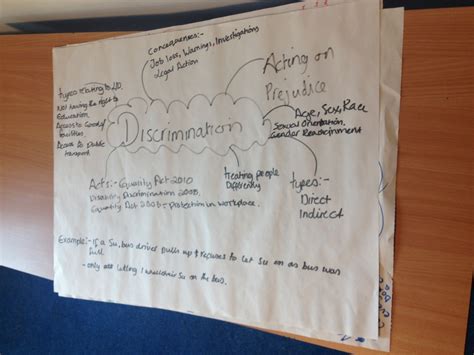 Consequences:-
Job loss, Warnings, Investigations
Legal Action
Acting on
Prejudice
types relating to LD.
Not having the right to
Education.
Access to Goods/
facilities
Access to Public
transport
Discrimination
Age, Sex, Race
Sexual Orientation,
Gender Reassignment
treating people
Differently
types:-
Direct
Indirect
Acts:- Equality Act 2010
Disability Discrimination 2005
Equality Act 2006 - protection in workplace.
Example:- if a Su, bus driver pulls up & refuses to let Su on as bus was
full
- only are letting 1 wheelchair Su on the bus.